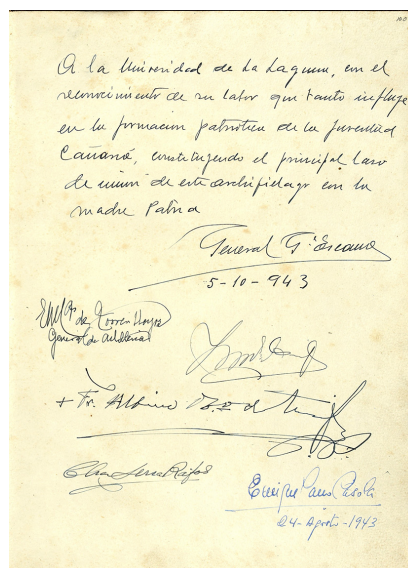 A la Universidad de La Laguna, con el
reconocimiento de su labor que tanto influye
en la formacion patriotica de la juventud
Canaria, constituyendo el principal lazo
de union de este archipielago con la
madre Patria
General Gª Escamez
5-10-943
de Torres
General de Artilleria
+ Fr. Albino
Elias Serra Rafols
Enrique
24-Agosto-1943